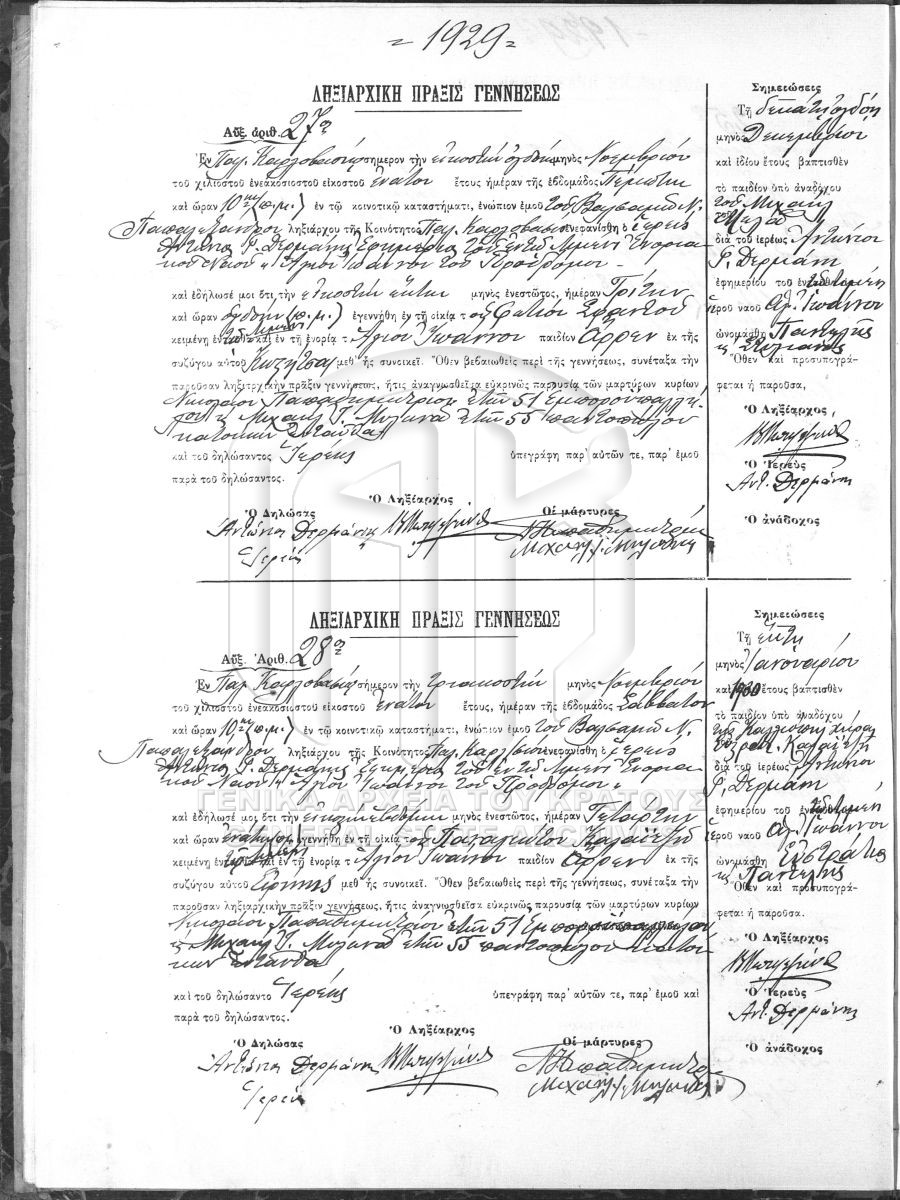 = 1929 =
ΛΗΞΙΑΡΧΙΚΗ ΠΡΑΞΙΣ ΓΕΝΝΗΣΕΩΣ
Αὔξ. ἀριθ. 27η
Ἐν Παλ. Καρλοβασίῳ σήμερον τὴν εἰκοστὴν ὀγδόην μηνὸς Νοεμβρίου
τοῦ χιλιοστοῦ ἐνεακοσιοστοῦ εἰκοστοῦ ἐνάτου ἔτους ἡμέραν τῆς ἑβδομάδος Πέμπτην
καὶ ὥραν 10ην (π.μ.) ἐν τῷ κοινοτικῷ καταστήματι, ἐνώπιον ἐμοῦ τοῦ Βαλσαμῆ Ν.
Παπαλεξάνδρου ληξιάρχου τῆς Κοινότητος Παλ. Καρλοβασίου ἐνεφανίσθη ὁ ἱερεὺς
Ἀντώνιος Γ. Δερμάνης Ἐφημέριος τοῦ ἐν τῷ Λιμένι Ἐνορια-
κοῦ Ναοῦ "Ἁγίου Ἰωάννου τοῦ Προδρόμου -
καὶ ἐδήλωσέ μοι ὅτι τὴν εἰκοστὴν ἕκτην μηνὸς ἐνεστῶτος, ἡμέραν Τρίτην
καὶ ὥραν ὀγδόην (π.μ.) ἐγεννήθη ἐν τῇ οἰκίᾳ τοῦ
κειμένῃ ἐν τῇ ἐνορίᾳ τ Ἁγίου Ἰωάννου παιδίον ἄρρεν ἐκ τῆς
συζύγου αὐτοῦ μεθ' ἧς συνοικεῖ. Ὅθεν βεβαιωθεὶς περὶ τῆς γεννήσεως, συνέταξα τὴν
παροῦσαν ληξιαρχικὴν πρᾶξιν γεννήσεως, ἥτις ἀναγνωσθεῖσα εὐκρινῶς παρουσίᾳ τῶν μαρτύρων κυρίων
Νικολάου Παπαδημητρίου ἐτῶν 51 Ἐμποροϋπαλλή-
λου κ Μιχαὴλ Γ. Μυλωνᾶ ἐτῶν 55 παντοπώλου
κατοίκων ἐνταῦθα
καὶ τοῦ δηλώσαντος Ἱερέως ὑπεγράφη παρ' αὐτῶν τε, παρ' ἐμοῦ
παρὰ τοῦ δηλώσαντος.
Ὁ Δηλώσας Ὁ Ληξίαρχος Οἱ μάρτυρες
Ἀντώνιος Δερμάνης Ν Παπαδημητρίου
Ἱερεὺς Μιχαὴλ Γ. Μυλωνᾶς
Σημειώσεις
Τῇ δεκάτῃ ὀγδόῃ
μηνὸς Δεκεμβρίου
καὶ ἰδίου ἔτους βαπτισθὲν
τὸ παιδίον ὑπὸ ἀναδόχου
τοῦ Μιχαὴλ
διὰ τοῦ ἱερέως Ἀντωνίου
Γ. Δερμάνη
ἐφημερίου τοῦ ἐν Λιμένι
ἱεροῦ ναοῦ Ἁγ. Ἰωάννου
ὠνομάσθη Παντελῆς
κ Στυλιανός
Ὅθεν καὶ προσυπογρά-
φεται ἡ παροῦσα,
Ὁ Ληξίαρχος
Ὁ Ἱερεὺς
Ἀντ. Δερμάνης
Ὁ ἀνάδοχος
ΛΗΞΙΑΡΧΙΚΗ ΠΡΑΞΙΣ ΓΕΝΝΗΣΕΩΣ
Αὔξ. Ἀριθ. 28η
Ἐν Παλ. Καρλοβασίῳ σήμερον τὴν τριακοστὴν μηνὸς Νοεμβρίου
τοῦ χιλιοστοῦ ἐνεακοσιοστοῦ εἰκοστοῦ ἐνάτου ἔτους, ἡμέραν τῆς ἑβδομάδος Σάββατον
καὶ ὥραν 10ην (π.μ.) ἐν τῷ κοινοτικῷ καταστήματι, ἐνώπιον ἐμοῦ τοῦ Βαλσαμῆ Ν.
Παπαλεξάνδρου ληξιάρχου τῆς Κοινότητος Παλ. Καρλοβασίου ἐνεφανίσθη ὁ ἱερεὺς
Ἀντώνιος Γ. Δερμάνης Ἐφημέριος τοῦ ἐν τῷ Λιμένι Ἐνορια-
κοῦ Ναοῦ "Ἁγίου Ἰωάννου τοῦ Προδρόμου"
καὶ ἐδήλωσέ μοι ὅτι τὴν εἰκοστὴν ἑβδόμην μηνὸς ἐνεστῶτος, ἡμέραν Τετάρτην
καὶ ὥραν ἐνάτην (π.μ.) ἐγεννήθη ἐν τῇ οἰκίᾳ τοῦ
κειμένῃ ἐν τῇ ἐνορίᾳ τ Ἁγίου Ἰωάννου παιδίον ἄρρεν ἐκ τῆς
συζύγου αὐτοῦ Εἰρήνης μεθ' ἧς συνοικεῖ. Ὅθεν βεβαιωθεὶς περὶ τῆς γεννήσεως, συνέταξα τὴν
παροῦσαν ληξιαρχικὴν πρᾶξιν γεννήσεως, ἥτις ἀναγνωσθεῖσα εὐκρινῶς παρουσίᾳ τῶν μαρτύρων κυρίων
Νικολάου Παπαδημητρίου ἐτῶν 51 Ἐμποροϋπαλλήλου
κ Μιχαὴλ Γ. Μυλωνᾶ ἐτῶν 55 παντοπώλου κατοί-
κων ἐνταῦθα
καὶ τοῦ δηλώσαντο Ἱερέως ὑπεγράφη παρ' αὐτῶν τε, παρ' ἐμοῦ καὶ
παρὰ τοῦ δηλώσαντος.
Ὁ Δηλώσας Ὁ Ληξίαρχος Οἱ μάρτυρες
Ἀντώνιος Δερμάνης Ν Παπαδημητρίου
Ἱερεὺς Μιχαὴλ Γ. Μυλωνᾶς
Σημειώσεις
Τῇ ἕκτῃ
μηνὸς Ἰανουαρίου
καὶ 1930 ἔτους βαπτισθὲν
τὸ παιδίον ὑπὸ ἀναδόχου
τῆς Καλλιόπης χήρας
διὰ τοῦ ἱερέως Ἀντωνίου
Γ. Δερμάνη
ἐφημερίου τοῦ ἐν Λιμένι
ἱεροῦ ναοῦ Ἁγ. Ἰωάννου
ὠνομάσθη Εὐστράτιος
κ Παντελῆς
Ὅθεν καὶ προσυπογρά-
φεται ἡ παροῦσα.
Ὁ Ληξίαρχος
Ὁ Ἱερεὺς
Ἀντ. Δερμάνης
Ὁ ἀνάδοχος
ΓΕΝΙΚΑ ΑΡΧΕΙΑ ΤΟΥ ΚΡΑΤΟΥΣ
GENERAL STATE ARCHIVES